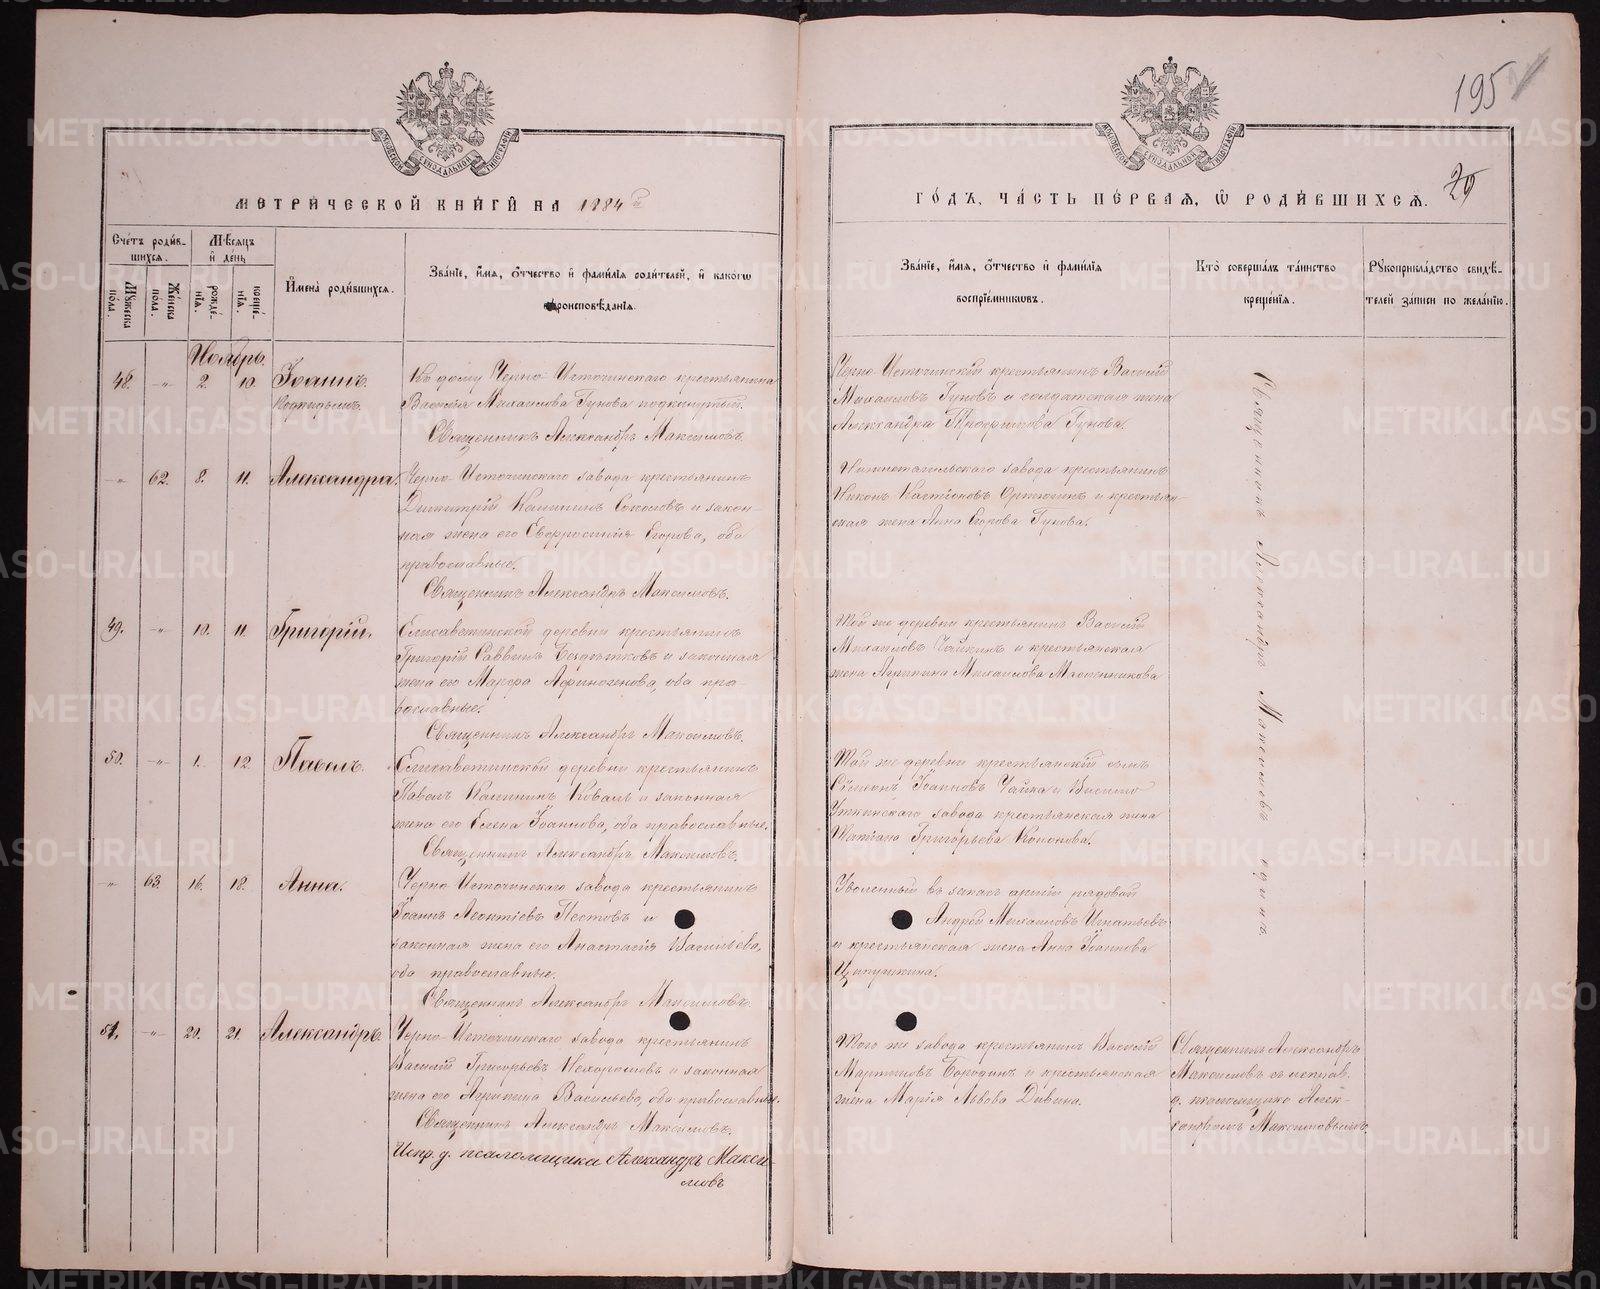 195
МЕТРИЧЕСКОЙ КНИГИ НА 1884
ГОДЪ, ЧАСТЬ ПЕРВАЯ, Ѡ РОДИВШИХСЯ.
Счетъ родив-
шихся.
Мужеска пола.
Женска пола.
Мѣсяцъ и день
рожде-
нія.
креще-
нія.
Имена родившихся.
Званіе, имя, отчество и фамилія родителей, и какогѡ
вѣроисповѣданія.
Званіе, имя, отчество и фамилія
воспріемниковъ.
Кто совершалъ таинство
крещенія.
Рукоприкладство свидѣ-
телей записи по желанію.
Ноябрь.
48. -„- 2. 10. Іоаннъ.
Подкидышъ.
Къ дому Черно-Источинскаго крестьянина
Василія Михаилова Гунова подкинутый.
Священникъ Александръ Максимовъ.
Черно-Источинскій крестьянинъ Василій
Михаиловъ Гуновъ и солдатская жена
Александра Трофимова Гунова.
-„- 62. 8. 11. Александра.
Черно-Источинскаго завода крестьянинъ
Димитрій Калининъ Соколовъ и закон-
ная жена его Егорова, оба
православные.
Священникъ Александръ Максимовъ.
Нижнетагильскаго завода крестьянинъ
Никонъ и крестьян-
ская жена Анна Егорова Гунова.
49. -„- 10. 11. Григорій.
Елисаветинской деревни крестьянинъ
Григорій Саввинъ и законная
жена его Марѳа Аѳиногенова, оба пра-
вославные.
Священникъ Александръ Максимовъ.
Той же деревни крестьянинъ Василій
Михаиловъ Чайкинъ и крестьянская
жена Агрипина Михаилова Мясенникова
50. -„- 1. 12. Павелъ.
Елисаветинской деревни крестьянинъ
Павелъ Калининъ Коваль и законная
жена его Елена Іоаннова, оба православные.
Священникъ Александръ Максимовъ.
Той же деревни крестьянскій сынъ
Сѵмеонъ Іоанновъ Чайка и Висимо
Уткинскаго завода крестьянская жена
Татіана Григорьева Кононова.
-„- 63. 16. 18. Анна.
Черно-Источинскаго завода крестьянинъ
Іоаннъ Леонтіевъ Пестовъ и
законная жена его Анастасія Васильева,
оба православные.
Священникъ Александръ Максимовъ.
Уволенный въ запасъ арміи рядовой
Андрей Михаиловъ Игнатьевъ
и крестьянская жена Анна Іоаннова
Ципушкина.
Священникъ Александръ Максимовъ одинъ
51. -„- 20. 21. Александръ.
Черно-Источинскаго завода крестьянинъ
Василій Григорьевъ Нехорошовъ и законная
жена его Агрипина Васильева, оба православные.
Священникъ Александръ Максимовъ.
Испр. д. псаломщика Александръ Макси-
мовъ
Того же завода крестьянинъ Василій
Мартиновъ Бородинъ и крестьянская
жена Марія Львова Дивина.
Священникъ Александръ
Максимовъ съ исправ.
д. псаломщика Алек-
сандромъ Максимовымъ.